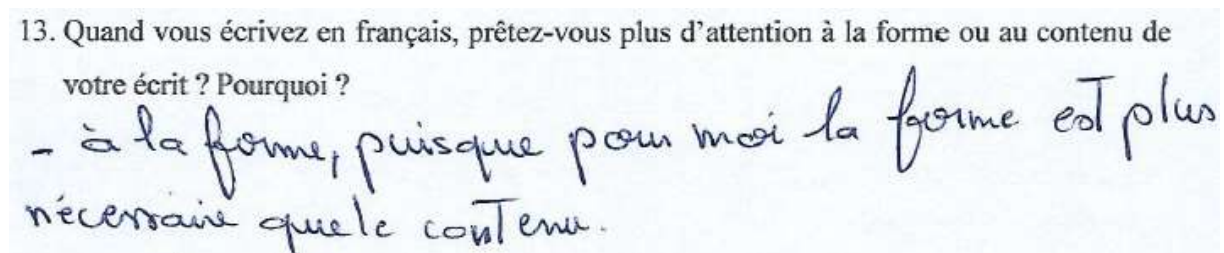 13. Quand vous écrivez en français, prêtez-vous plus d'attention à la forme ou au contenu de
votre écrit ? Pourquoi ?
- à la forme, puisque pour moi la forme est plus
nécessaire que le contenu.